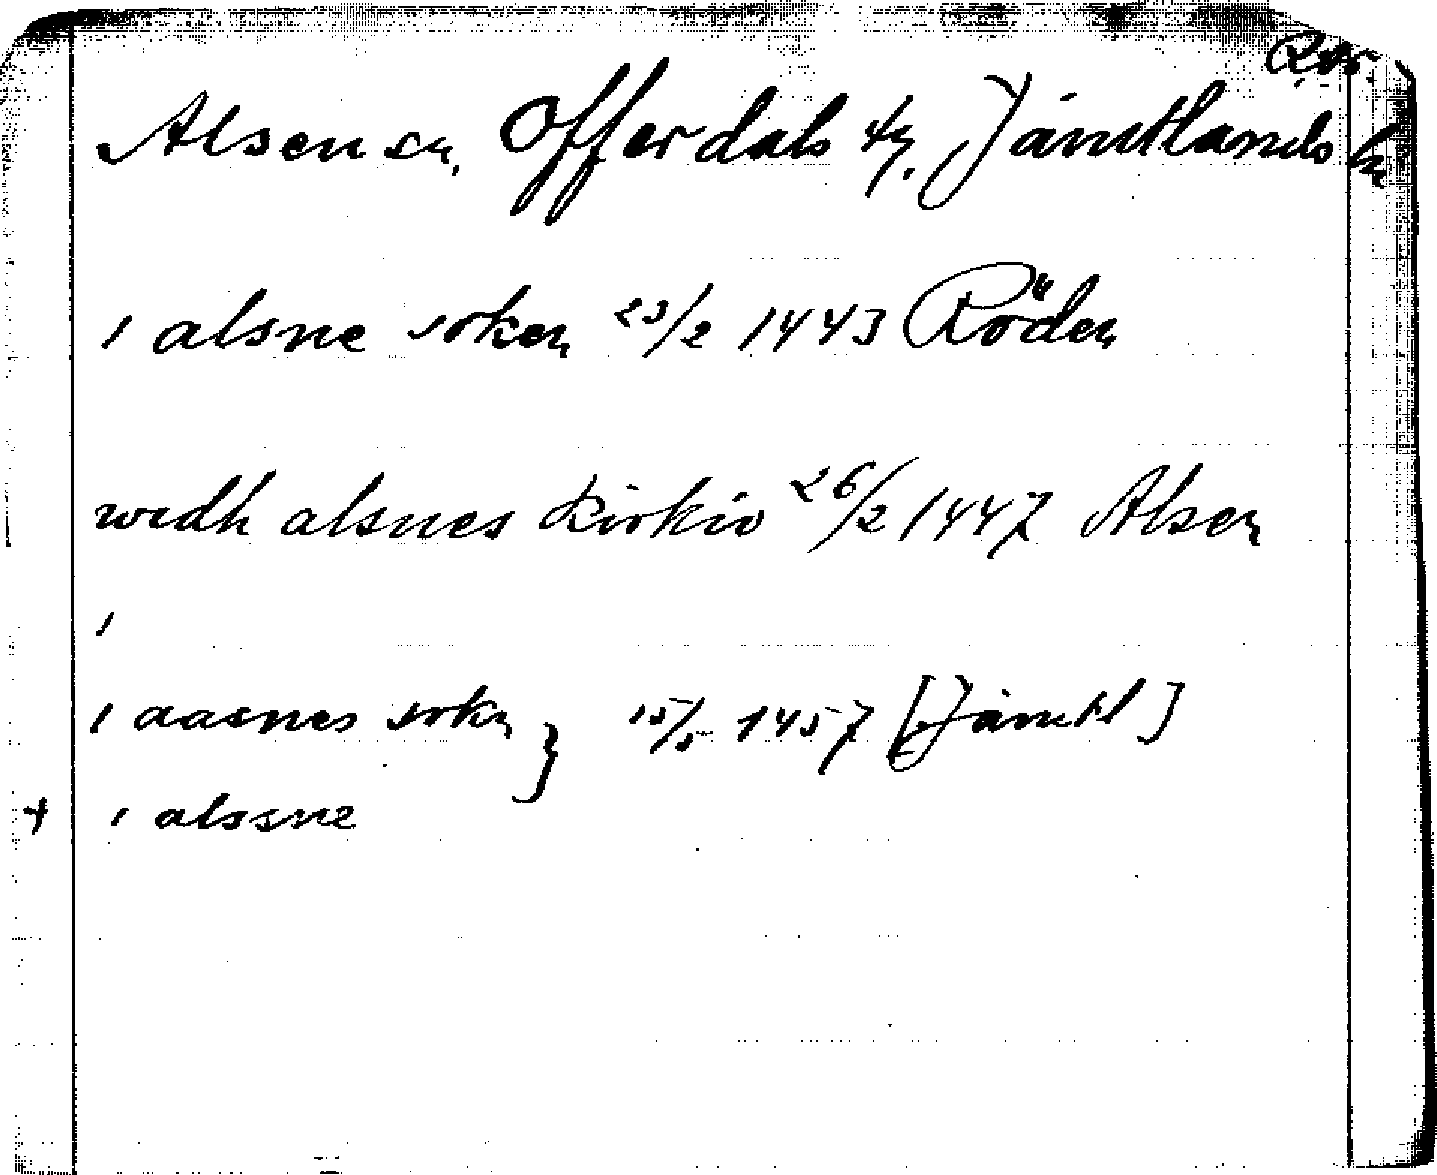 Alsen sn, Offerdals tg. Jämtlands ln
i alsne soken 23/2 1443 Röden
widh alsnes Kirkio 26/2 1447 Alsen
i
i aasnes sokn } 15/5 1457 [Jämtl]
+ i alssne